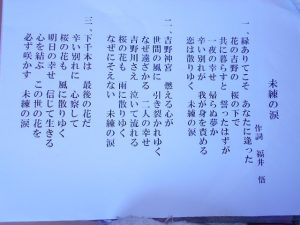 未練の涙
作詞 福井 悟
一、縁ありてこそ あなたに逢った
花の吉野の 桜の下で
共に暮らすと 誓ったはずが
一夜の幸せ 帰らぬ夢か
辛い別れが 我が身を責める
恋は散りゆく 未練の涙
二、吉野神宮 燃える心が
世間の風に 引き裂かれゆく
なぜ遠ざかる 二人の幸せ
吉野川さえ 泣いて流れる
桜の花も 雨に散りゆく
なぜにそえない 未練の涙
三、下千本は 最後の花だ
辛い別れに 心察して
桜の花も 風に散りゆく
明日の幸せ 信じて生きる
心を結ぶ この世の花を
必ず咲かす 未練の涙